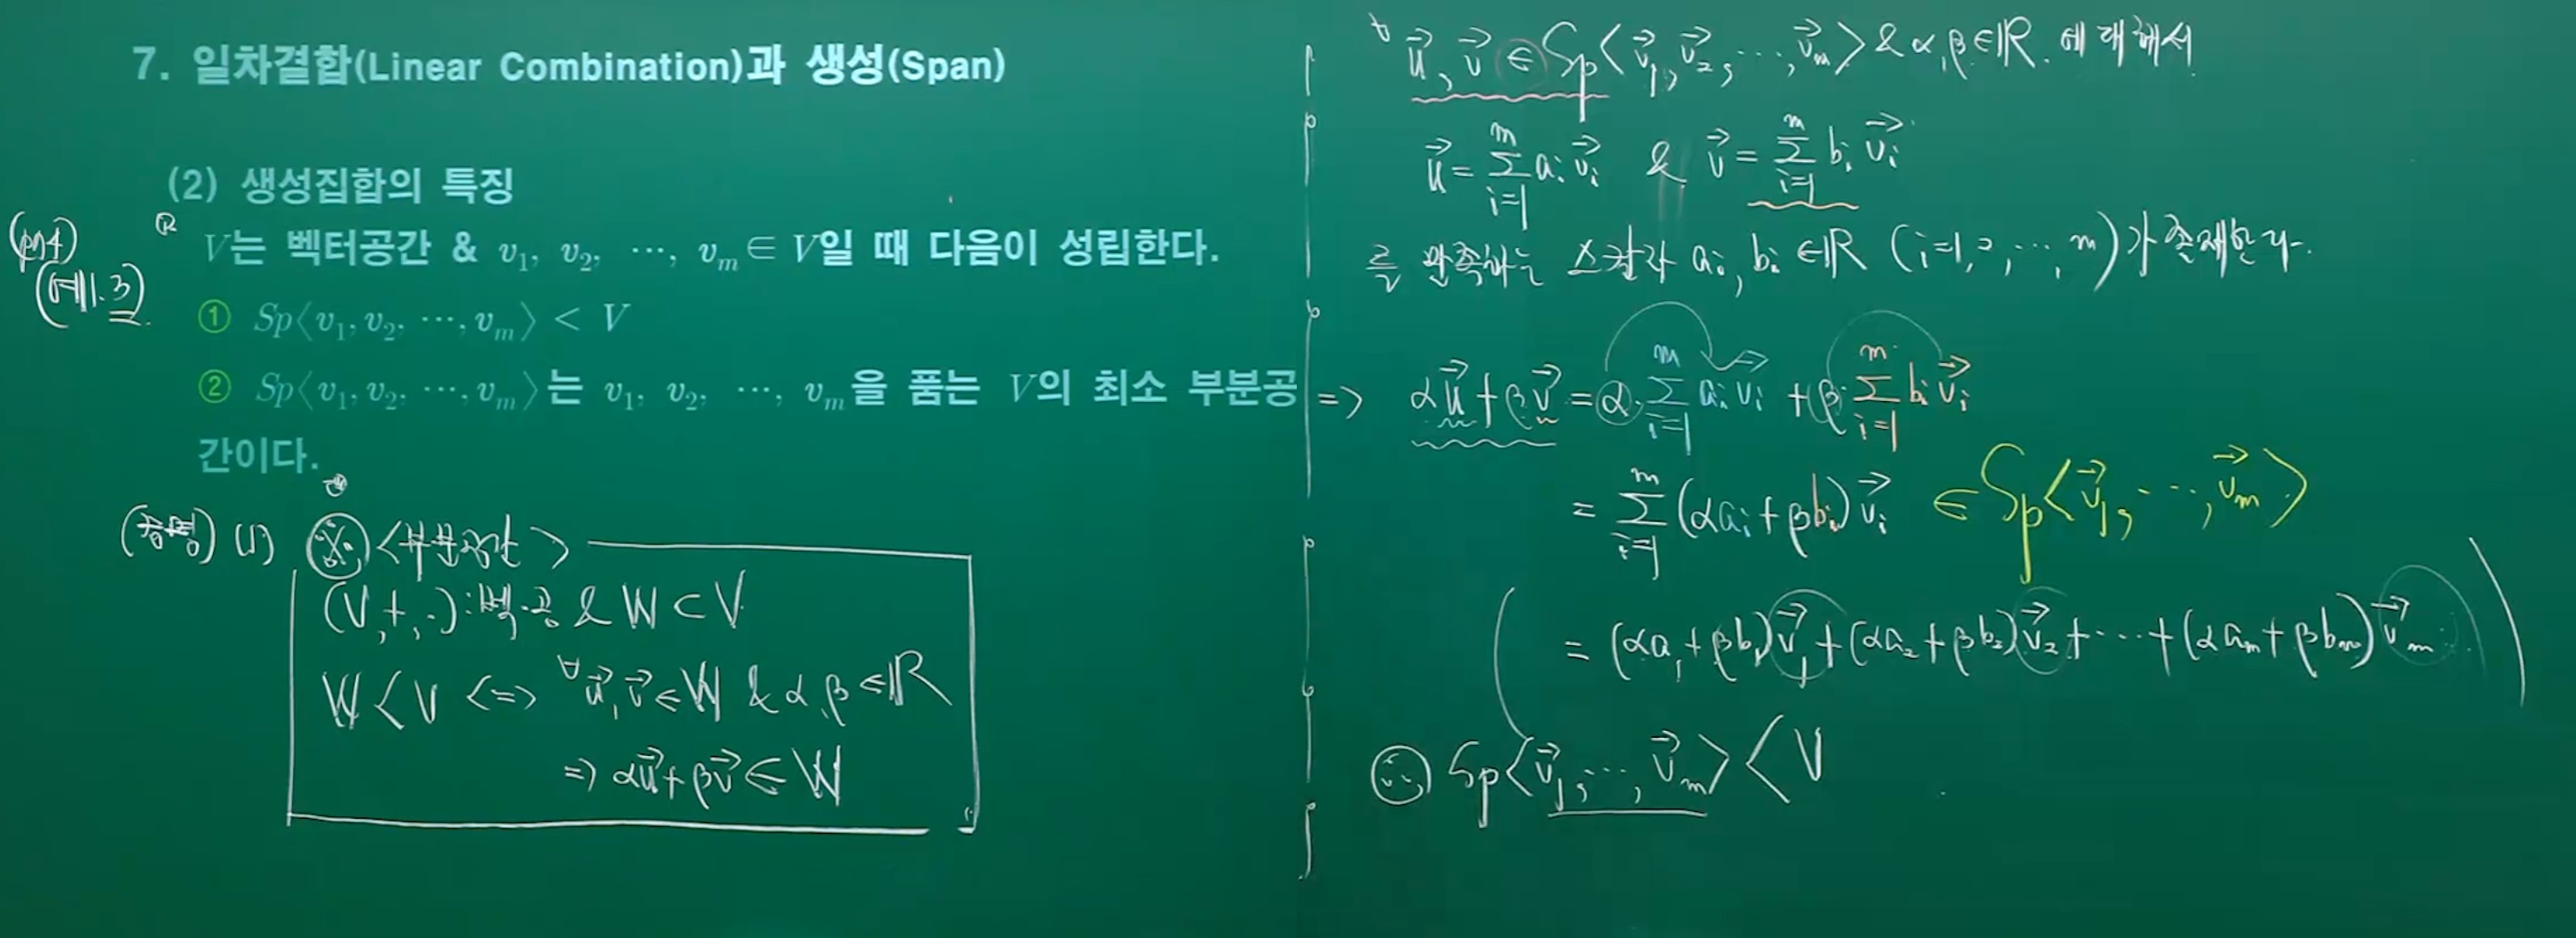 7. 일차결합(Linear Combination)과 생성(Span)
(2) 생성집합의 특징
V는 벡터공간 & v₁, v₂, ⋯, vₘ ∈ V일 때 다음이 성립한다.
① Sp⟨v₁, v₂, ⋯, vₘ⟩ < V
② Sp⟨v₁, v₂, ⋯, vₘ⟩는 v₁, v₂, ⋯, vₘ을 품는 V의 최소 부분공
간이다.
(예1.3)
(증명) (1) ※ <부분공간>
(V, +, ·) : 벡.공 & W ⊂ V
W < V <=> ∀u⃗, v⃗ ∈ W & α, β ∈ ℝ
=> αu⃗ + βv⃗ ∈ W
∀u⃗, v⃗ ∈ Sp⟨v⃗₁, v⃗₂, ⋯, v⃗ₘ⟩ & α, β ∈ ℝ 에 대해서
u⃗ = Σᵢ₌₁ᵐ aᵢ v⃗ᵢ & v⃗ = Σᵢ₌₁ᵐ bᵢ v⃗ᵢ
를 만족하는 스칼라 aᵢ, bᵢ ∈ ℝ (i=1, 2, ⋯, m)가 존재한다.
=> αu⃗ + βv⃗ = α · Σᵢ₌₁ᵐ aᵢ v⃗ᵢ + β · Σᵢ₌₁ᵐ bᵢ v⃗ᵢ
= Σᵢ₌₁ᵐ (αaᵢ + βbᵢ) v⃗ᵢ ∈ Sp⟨v⃗₁, ⋯, v⃗ₘ⟩
( = (αa₁ + βb₁) v⃗₁ + (αa₂ + βb₂) v⃗₂ + ⋯ + (αaₘ + βbₘ) v⃗ₘ )
∴ Sp⟨v⃗₁, ⋯, v⃗ₘ⟩ < V